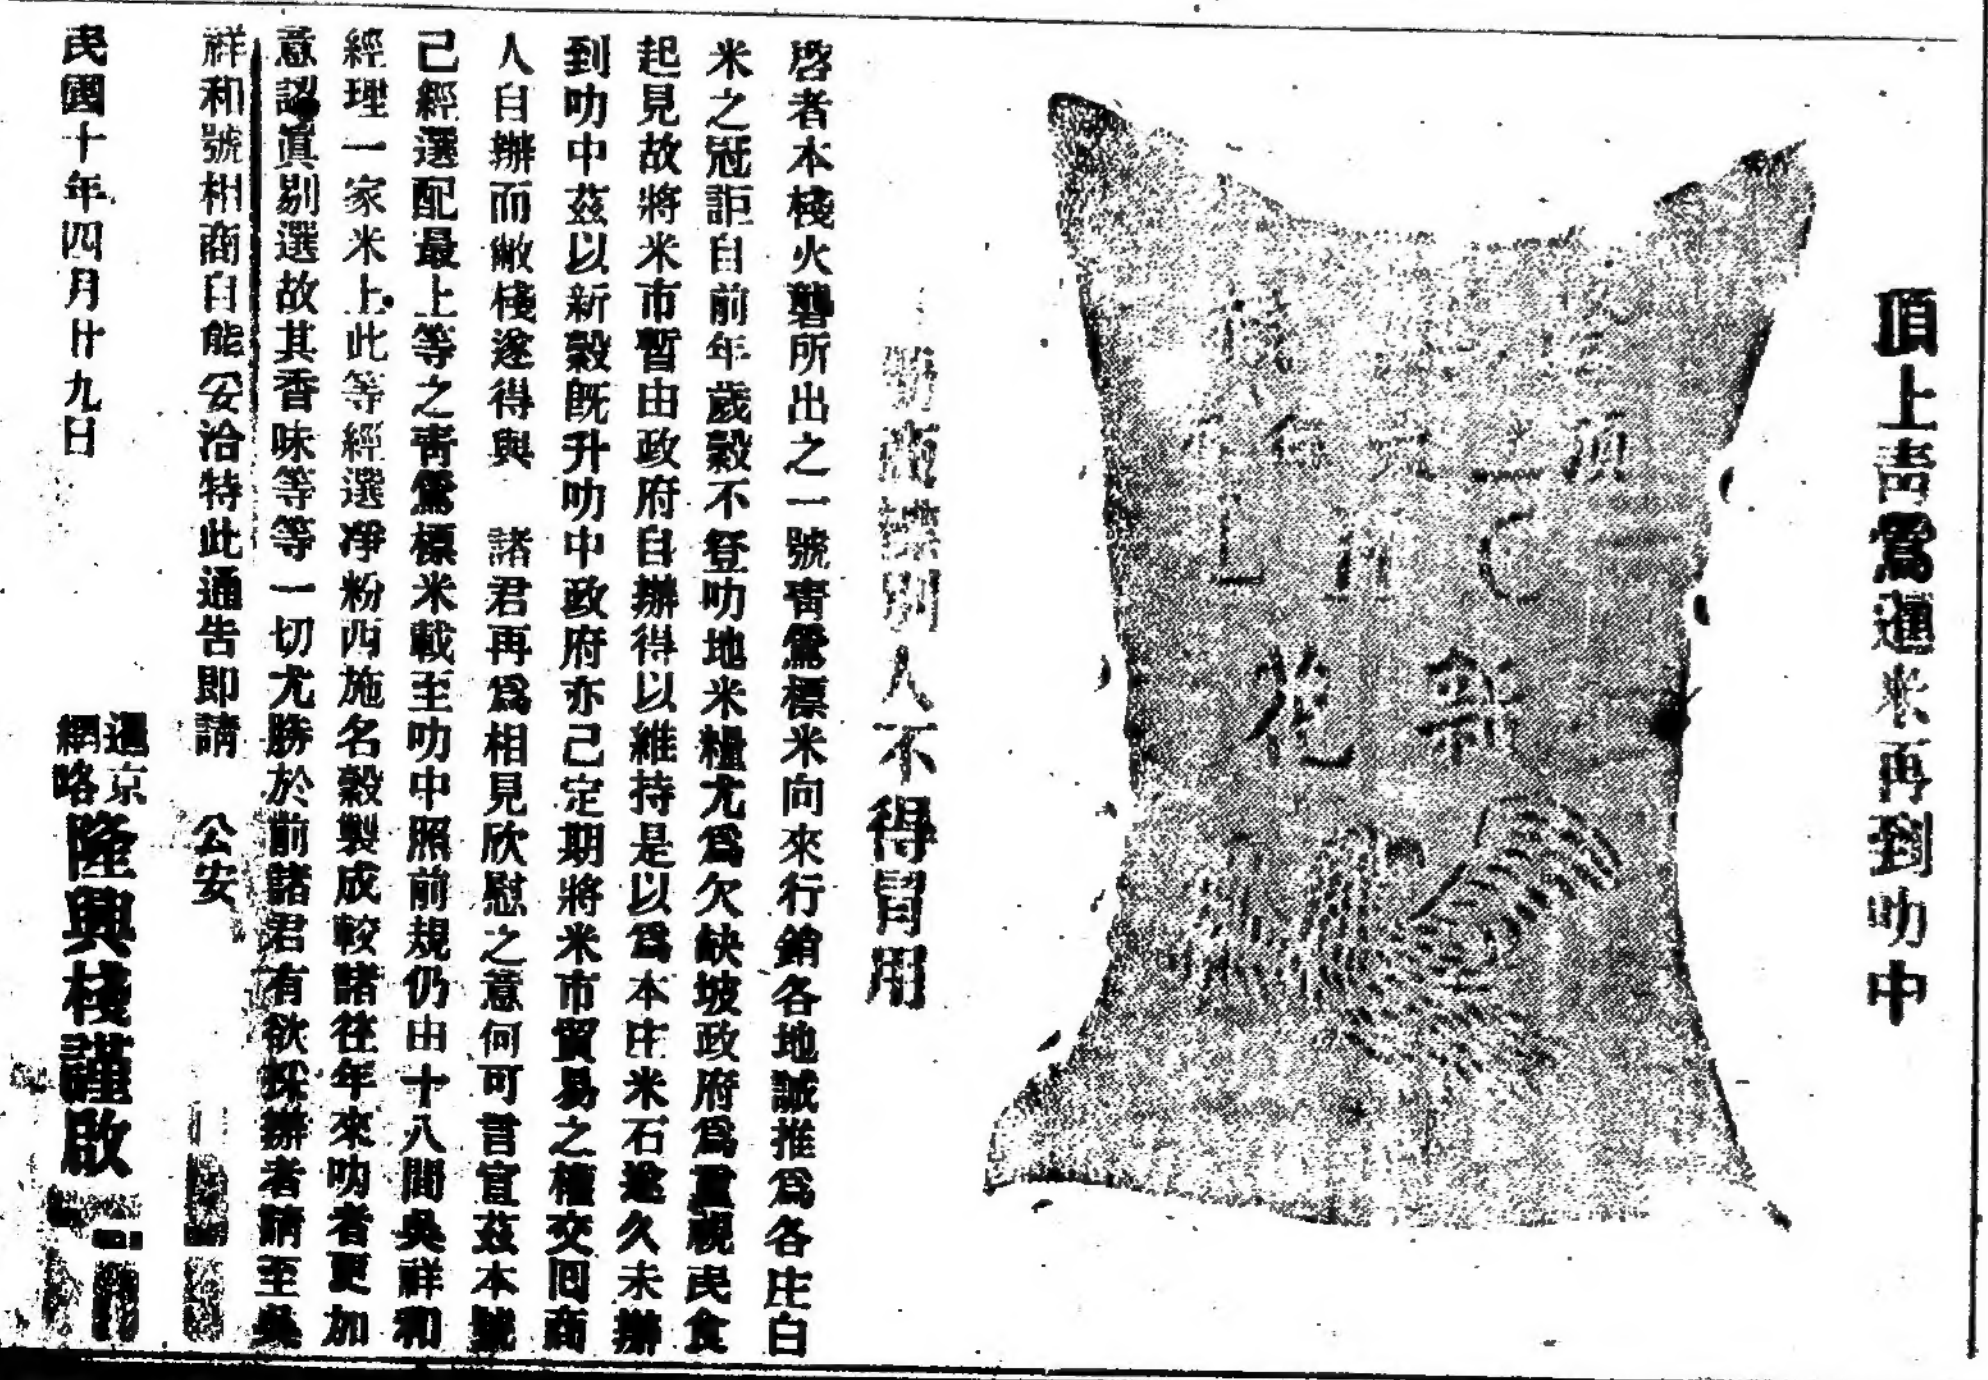 頂上靑鶯暹米再到叻中
頂上
L H C
新花
別人不得冒用
啓者本棧火礱所出之一號靑鶯標米向來行銷各地誠推爲各庄白
米之冠詎自前年歲穀不登叻地米糧尤爲欠缺坡政府爲重視民食
起見故將米市暫由政府自辦得以維持是以爲本庄米石遂久未辦
到叻中茲以新穀旣升叻中政府亦己定期將米市貿易之權交囘商
人自辦而敝棧遂得與　諸君再爲相見欣慰之意何可言宣茲本號
己經選配最上等之靑鶯標米載至叻中照前規仍由十八間吳祥和
經理一家米上此等經選淨粉西施名穀製成較諸往年來叻者更加
意認眞剔選故其香味等等一切尤勝於前諸君有欲採辦者請至吳
祥和號相商自能妥洽特此通告即請　公安
民國十年四月廿九日
暹京
網略
隆興棧謹啟